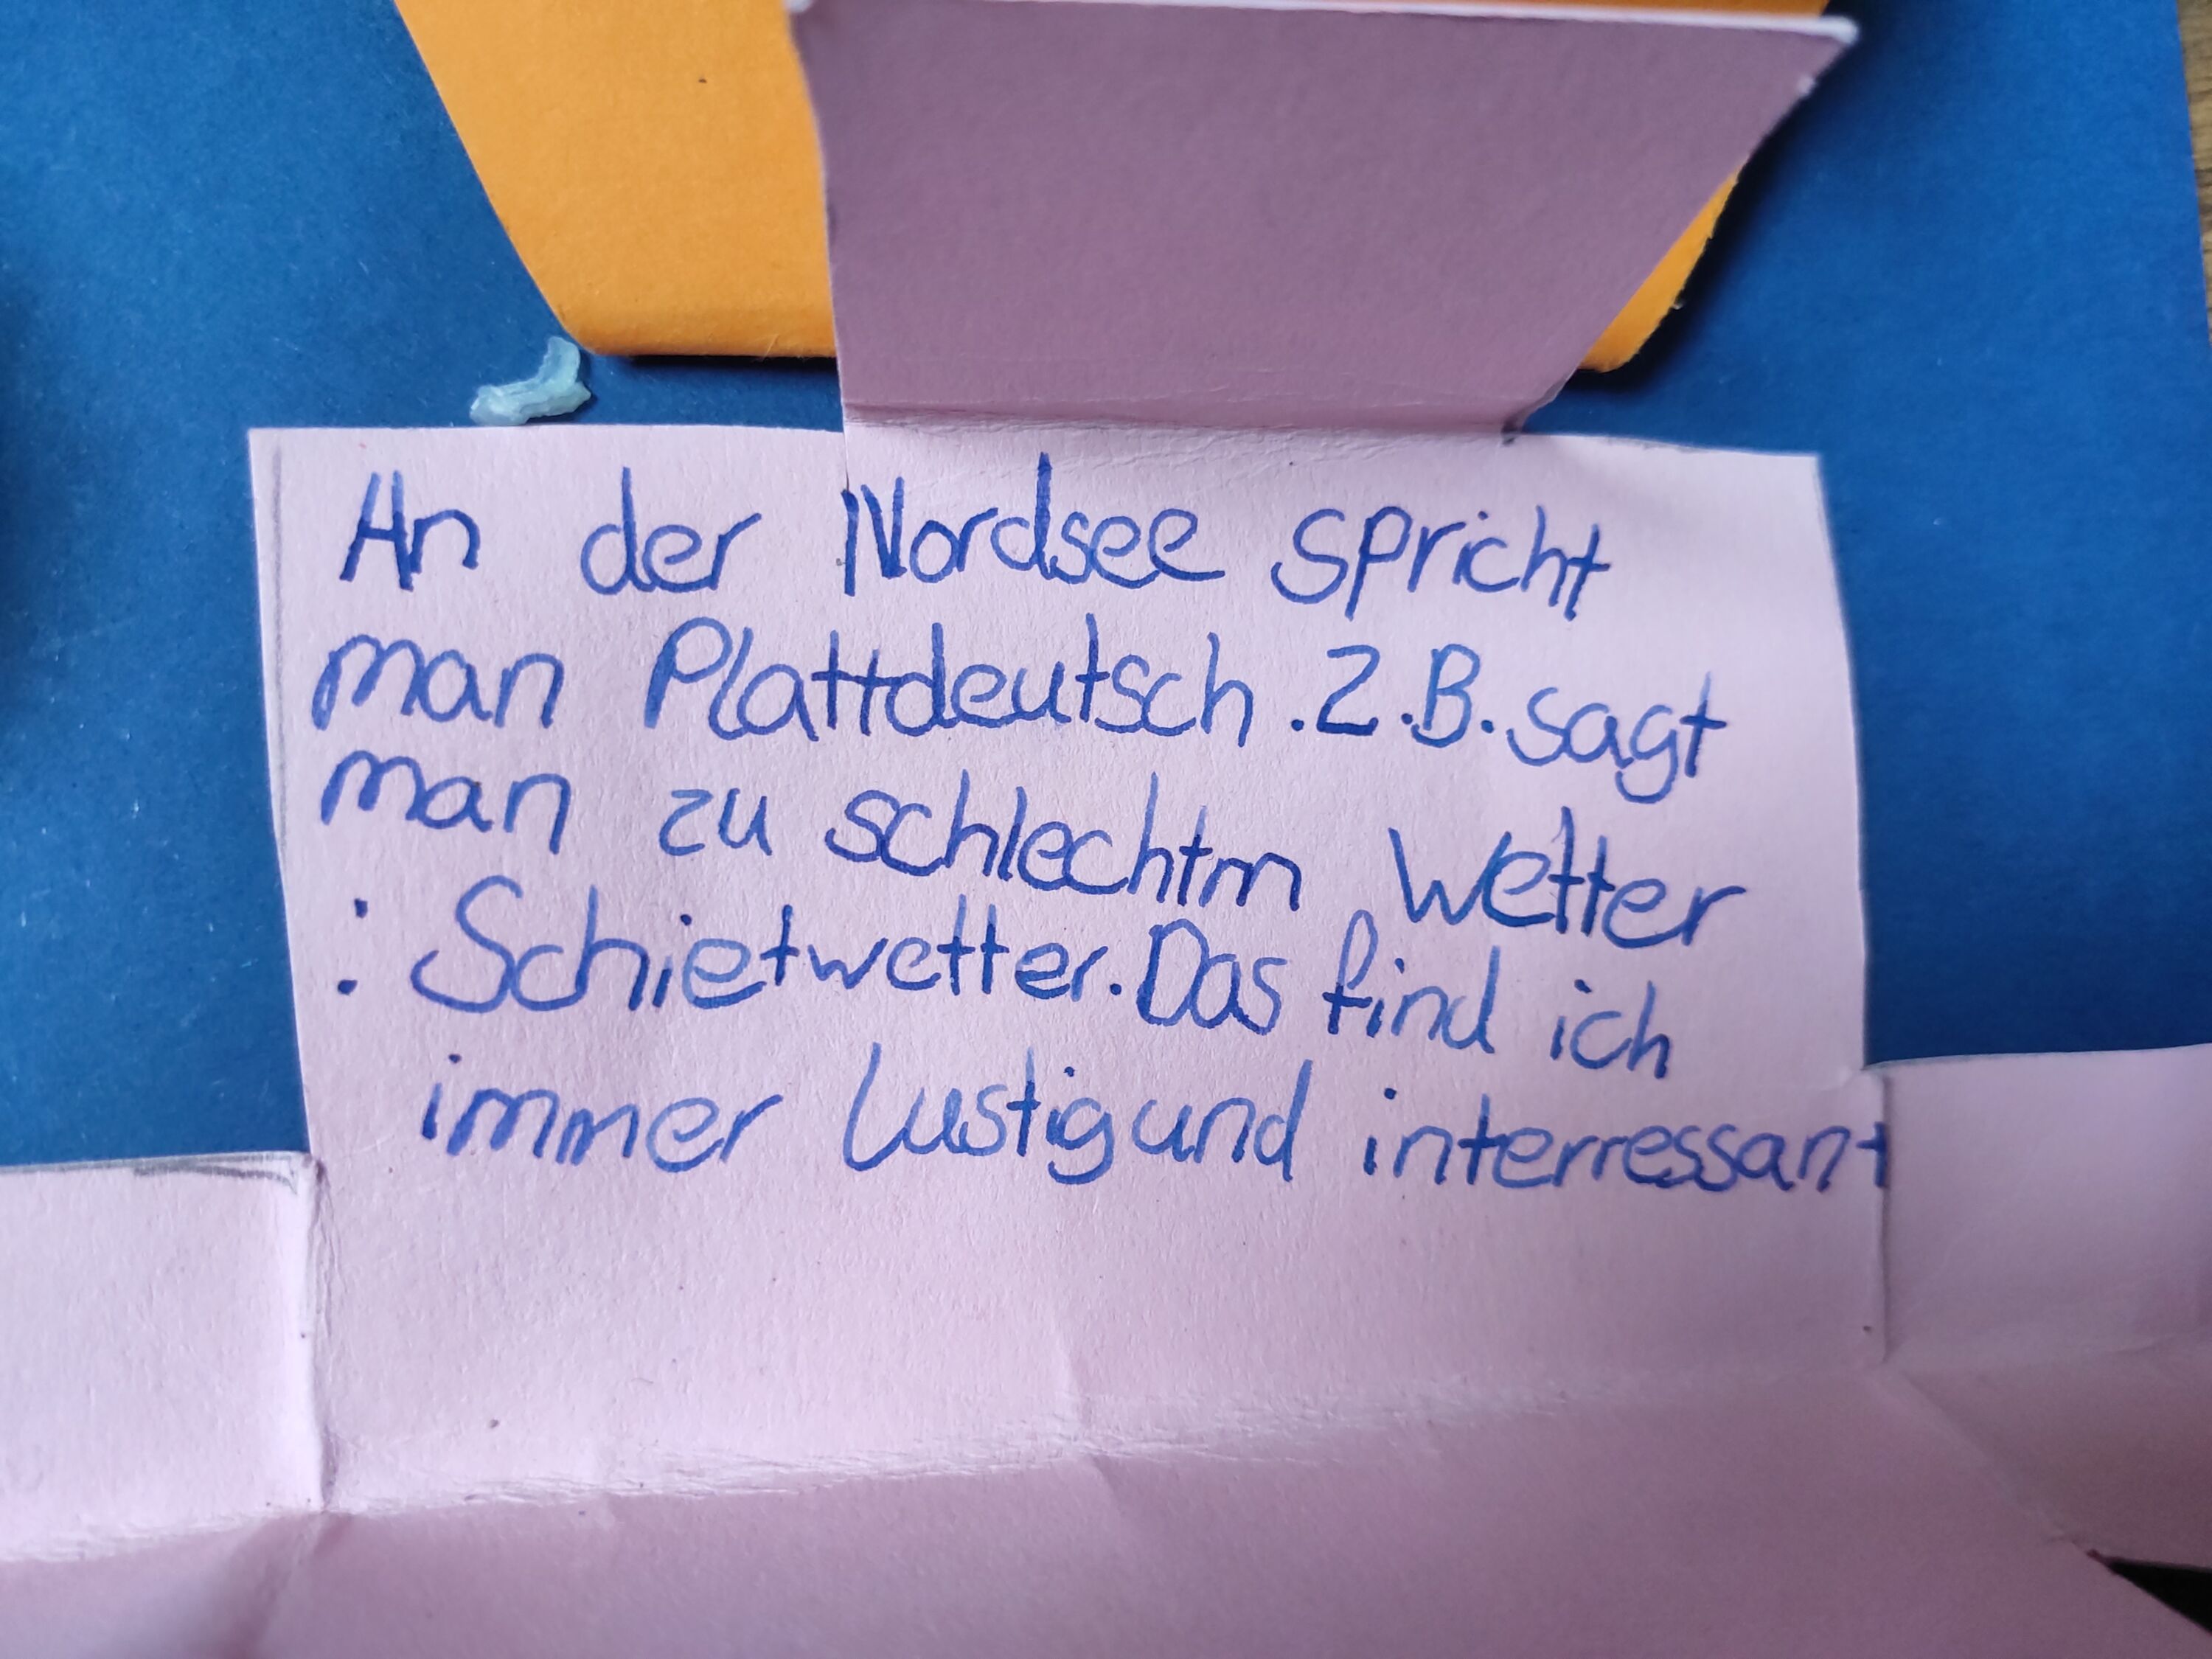 An der Nordsee spricht
man Plattdeutsch. Z.B. sagt
man zu schlechtm Wetter
: Schietwetter. Das find ich
immer Lustig und interressant